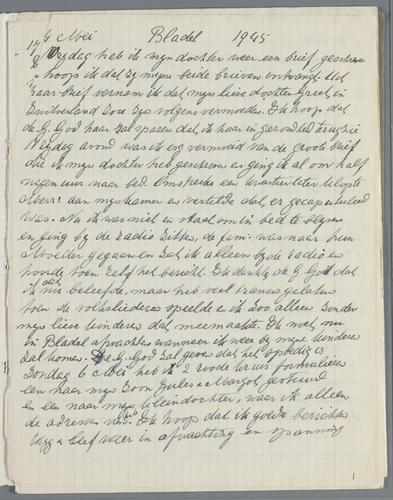 6 Mei Bladel 1945
Vrijdag heb ik mijn dochter weer een brief geschreven
hoop ik dat zij mijne beide brieven ontvangt. Uit
haar brief vernam ik dat mijn lieve dochter Greet in
Zwitserland zoo zijn volgens vermoeden. Ik hoop dat
de G. God haar zal sparen dat ik haar in gezondheid terug zie
Vrijdag avond was ik erg vermoeid van de groote brief
die ik mijn dochter heb geschreven en ging ik al om half
negen uur naar bed. Omstreeks een kwartier later klopte
Mevr. aan mijn kamer en vertelde dat er gecapituleerd
was. Nu ik was niet in staat om in bed te blijven
en ging bij de radio zitten, de fam. was naar hun
Moeder gegaan en zat ik alleen bij de radio en
hoorde toen zelf het bericht. Ik dankte de G. God dat
ik dit mocht beleefde, maar heb veel tranen gelaten
toen de volksliederen speelde en ik zoo alleen zonder
mijn lieve kinderen dat meemaakte. Ik moet nu
in Bladel afwachten wanneer ik weer bij mijne kinderen
zal komen. De G. God zal geven dat het spoedig is
Zondag 6 Mei heb ik 2 roode kruis formulieren
een naar mijn zoon Jules en Margot gestuurd
en een naar mijn kleindochter, waar ik alleen
de adressen van heb. Ik hoop dat ik goede berichten
krijg en leef weer in afwachting en spanning
1